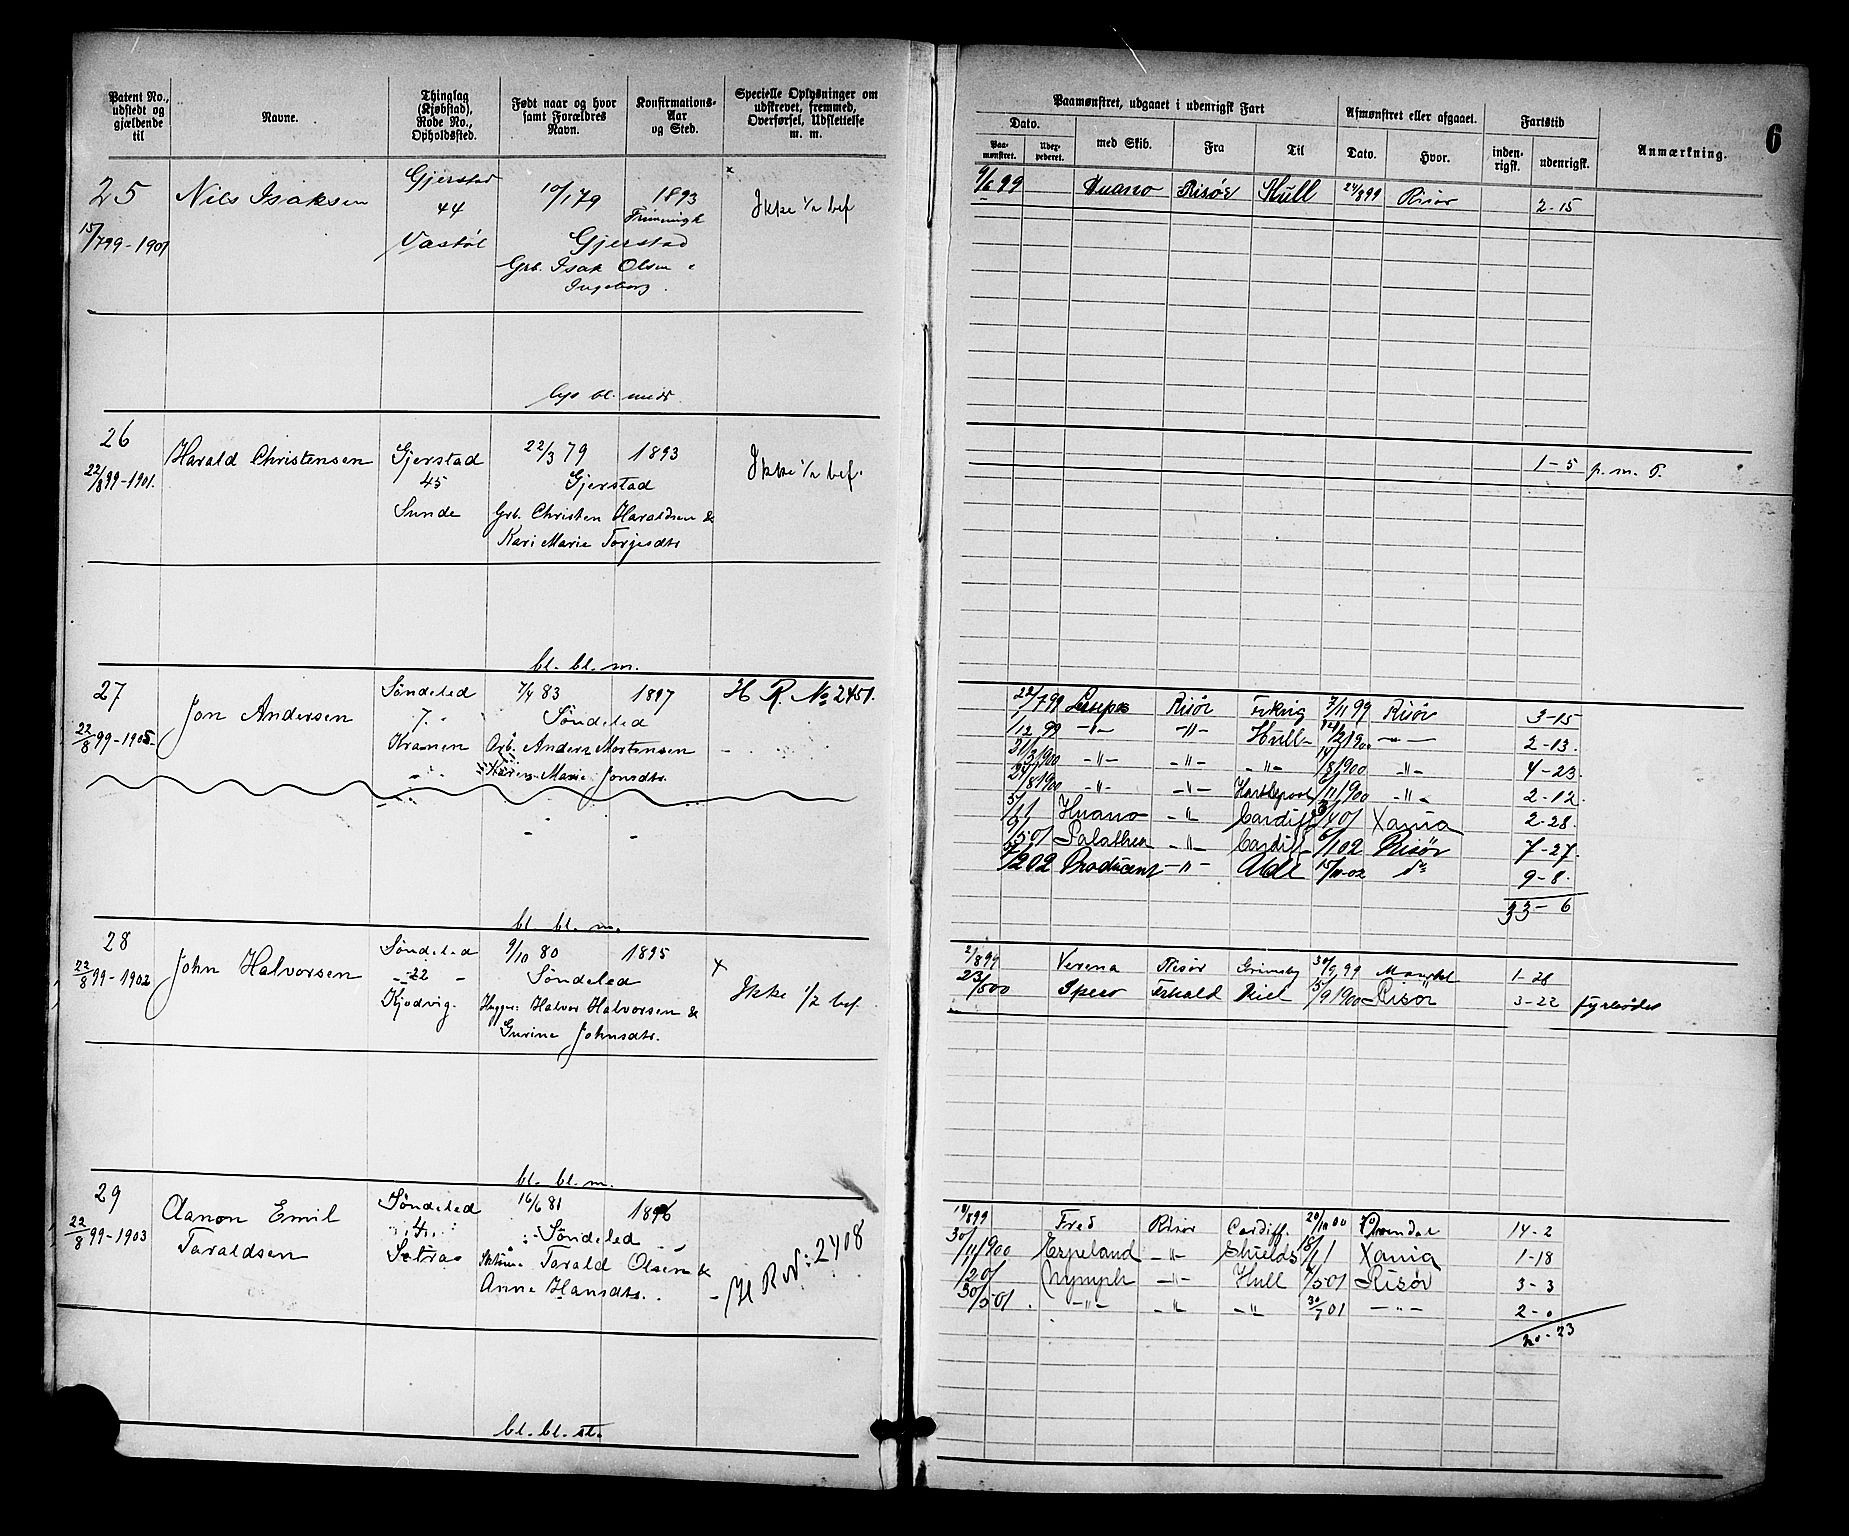 Patent No., udstedt og gjældende til
Navne.
Thinglag (Kjøbstad), Rode No., Opholdssted.
Født naar og hvor samt Forældres Navn.
Konfirmations- Aar og Sted.
Specielle Oplysninger om udskrevet, fremmed, Overførsel, Udslettelse m. m.
25 Nils Isaksen Gjerstad 10/1 79 1893 Ikke 1/2 bef
44
15/7 99-1901 Vastøl Gjerstad
Grb. Isak Olsen &
Ingeborg.
lys bl. midd.
26 Harald Christensen Gjerstad 22/3 79 1893 Ikke 1/2 bef.
22/8 99-1901. 45 Gjerstad
Sunde Grb. Christen Haraldsen &
Kari Marie Torjesdtr
bl. bl. m.
27 Jon Andersen Søndeled 7/4 83 1897 H. R. No 2451.
7. Søndeled
22/8 99-1905 Kranen Arb. Anders Mortensen
Karen Marie Jonsdtr.
bl. bl. m.
28 John Halvorsen Søndeled 9/10 80 1895 x
22/8 99-1902 22 Søndeled Ikke 1/2 bef.
Kjødvig. Halvor Halvorsen &
Gurine Johnsdtr.
bl. bl. m.
29 Aanon Emil Søndeled 16/6 81 1896
22/8 99-1903 Taraldsen 4. Søndeled
Setraa Tarald Olsen &
Anne Hansdtr. H R No: 2408
bl. bl. st.
6
Paamønstret, udgaaet i udenrigsk Fart
Afmønstret eller afgaaet.
Fartstid
Anmærkning.
Dato.
Paa- mønstret.
Uder- pederet.
med Skib.
Fra
Til
Dato.
Hvor.
inden- rigsk.
udenrigsk.
9/6 99 Huano Risør Hull 24/8 99 Risør 2-15
1-5 p. m. T.
22/7 99 Risør 7/11 99 Risør 3-15
1/12 99 -"- -"- Hull 14/2 1900 -"- 2-13.
21/3 1900 -"- -"- -"- 14/8 1900 -"- 4-23.
24/8 1900 -"- -"- Hartlepool 6/11 1900 -"- 2-12.
5/1 1 Huano -"- Cardiff 3/4 01 Xania 2-28.
9/5 01 Salathea -"- Cardiff 6/1 02 Risør 7-27.
7/2 02 Producent -"- 15/11-02 do 9-8.
33-6
2/8 99 Verena Risør Grimsby 30/9 99 1-28
23/5 00 Spero Kiel 15/9 1900 Risør 3-22 fyrbøder
18/8 99 Fred Risør Cardiff. 20/10 00 14-2
30/11 1900 Espeland -"- Shields 18/1 1 Xania 1-18
1/2 01 Nymph -"- Hull 4/5 01 Risør 3-3
30/5 01. -"- -"- -"- 30/7 01 -"- 2-0
20-23